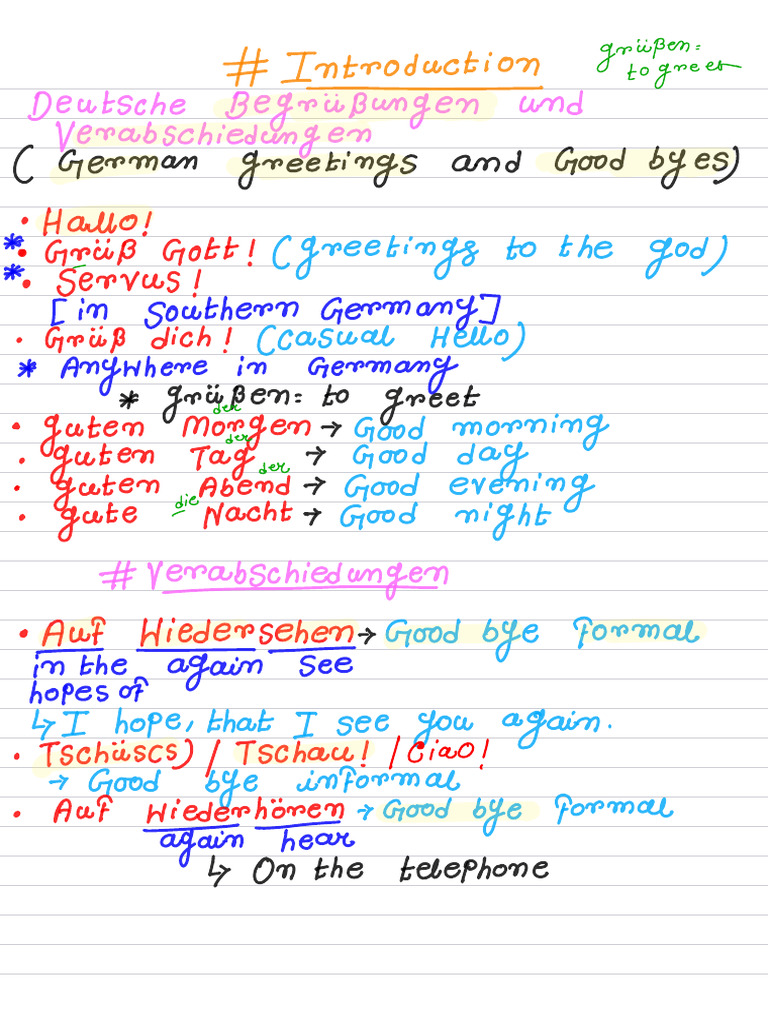 # Introduction
grüßen:
to greet
Deutsche Begrüßungen und
Verabschiedungen
( German greetings and Good byes)
• Hallo!
* • Grüß Gott! (greetings to the god)
* • Servus!
[in Southern Germany]
• Grüß dich! (casual Hello)
* Anywhere in Germany
* grüßen: to greet
der
• guten Morgen → Good morning
der
• guten Tag → Good day
der
• guten Abend → Good evening
die
• gute Nacht → Good night
# Verabschiedungen
• Auf Wiedersehen → Good bye formal
in the again see
hopes of
↳ I hope, that I see you again.
• Tschüscs) / Tschau! / Ciao!
→ Good bye informal
• Auf Wiederhören → Good bye formal
again hear
↳ On the telephone